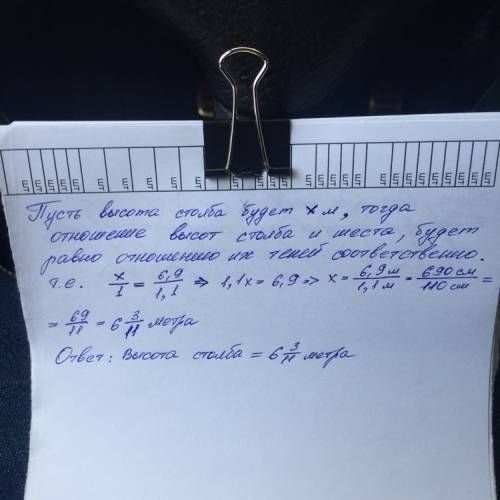 шт шт шт шт шт шт шт шт шт шт шт шт шт шт шт шт
Пусть высота столба будет x м, тогда
отношение высот столба и шеста, будет
равно отношению их теней соответственно.
т.е. x/1 = 6,9/1,1 ⇒ 1,1x = 6,9 ⇒ x = 6,9 м/1,1 м = 690 см/110 см =
= 69/11 = 6 3/11 метра
Ответ: Высота столба = 6 3/11 метра